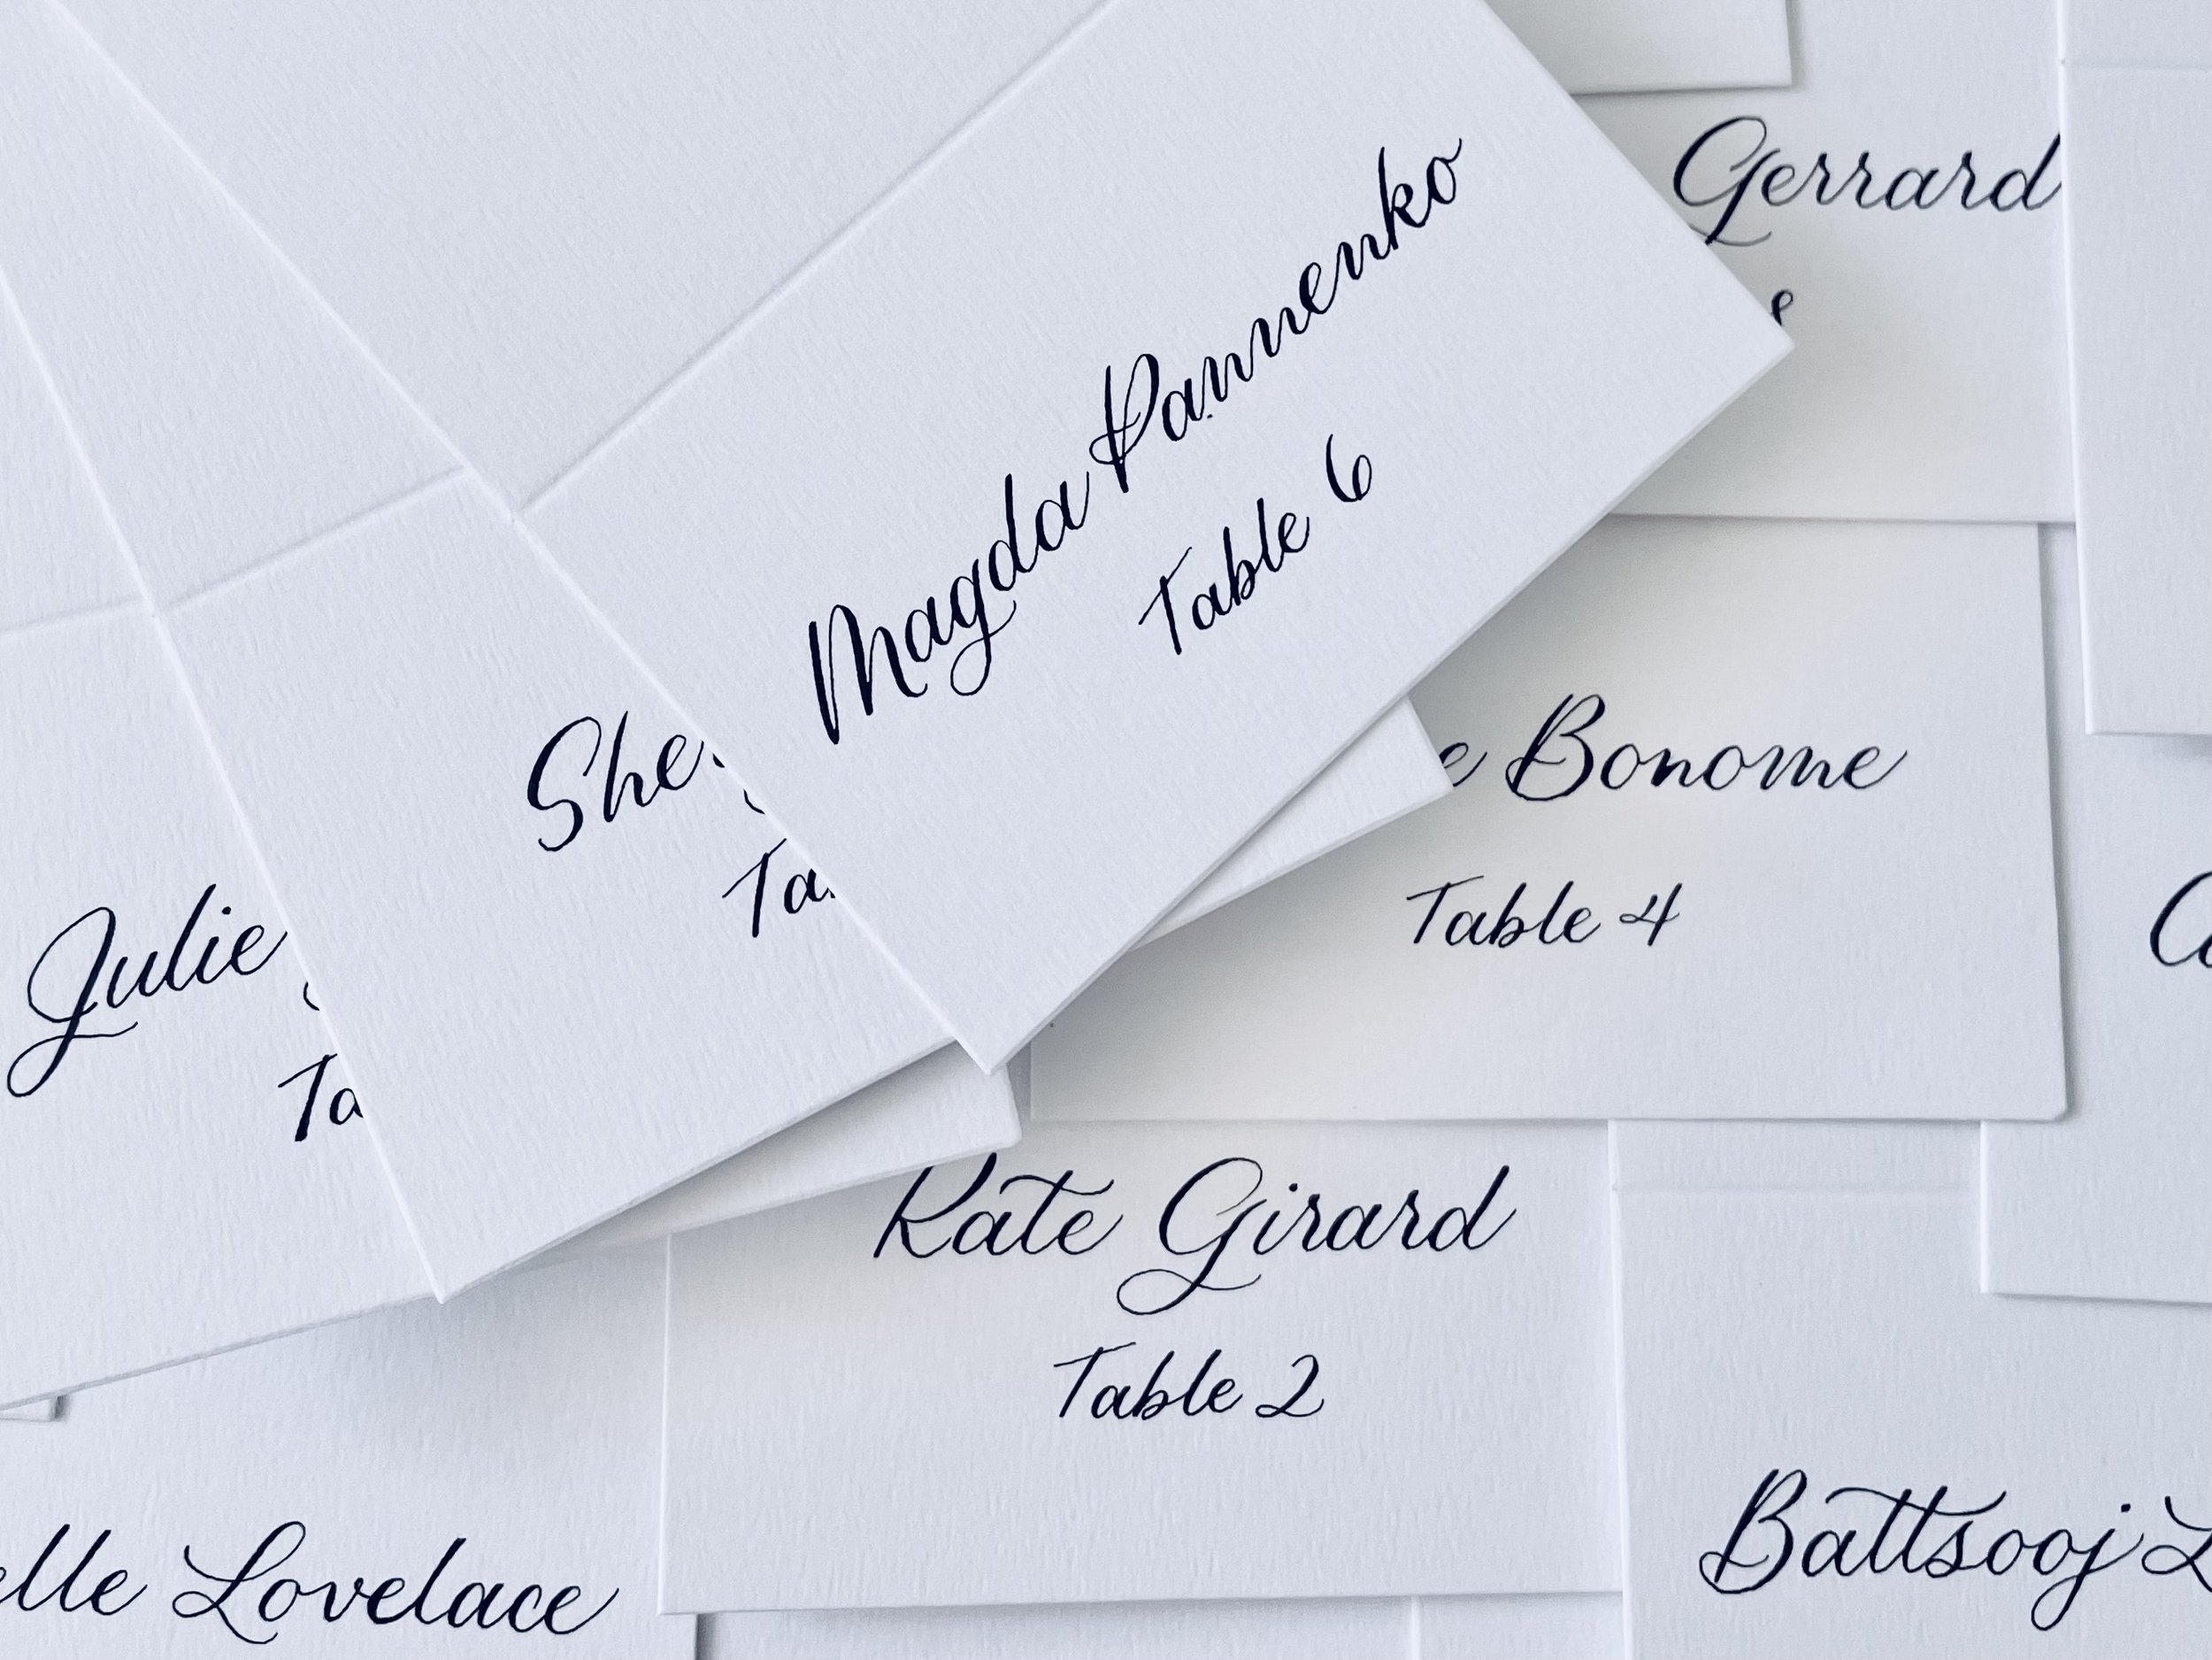 Gerrard
Magda Pannenko
Table 6
Bonome
Table 4
Julie
Kate Girard
Table 2
Lovelace
Battsooj